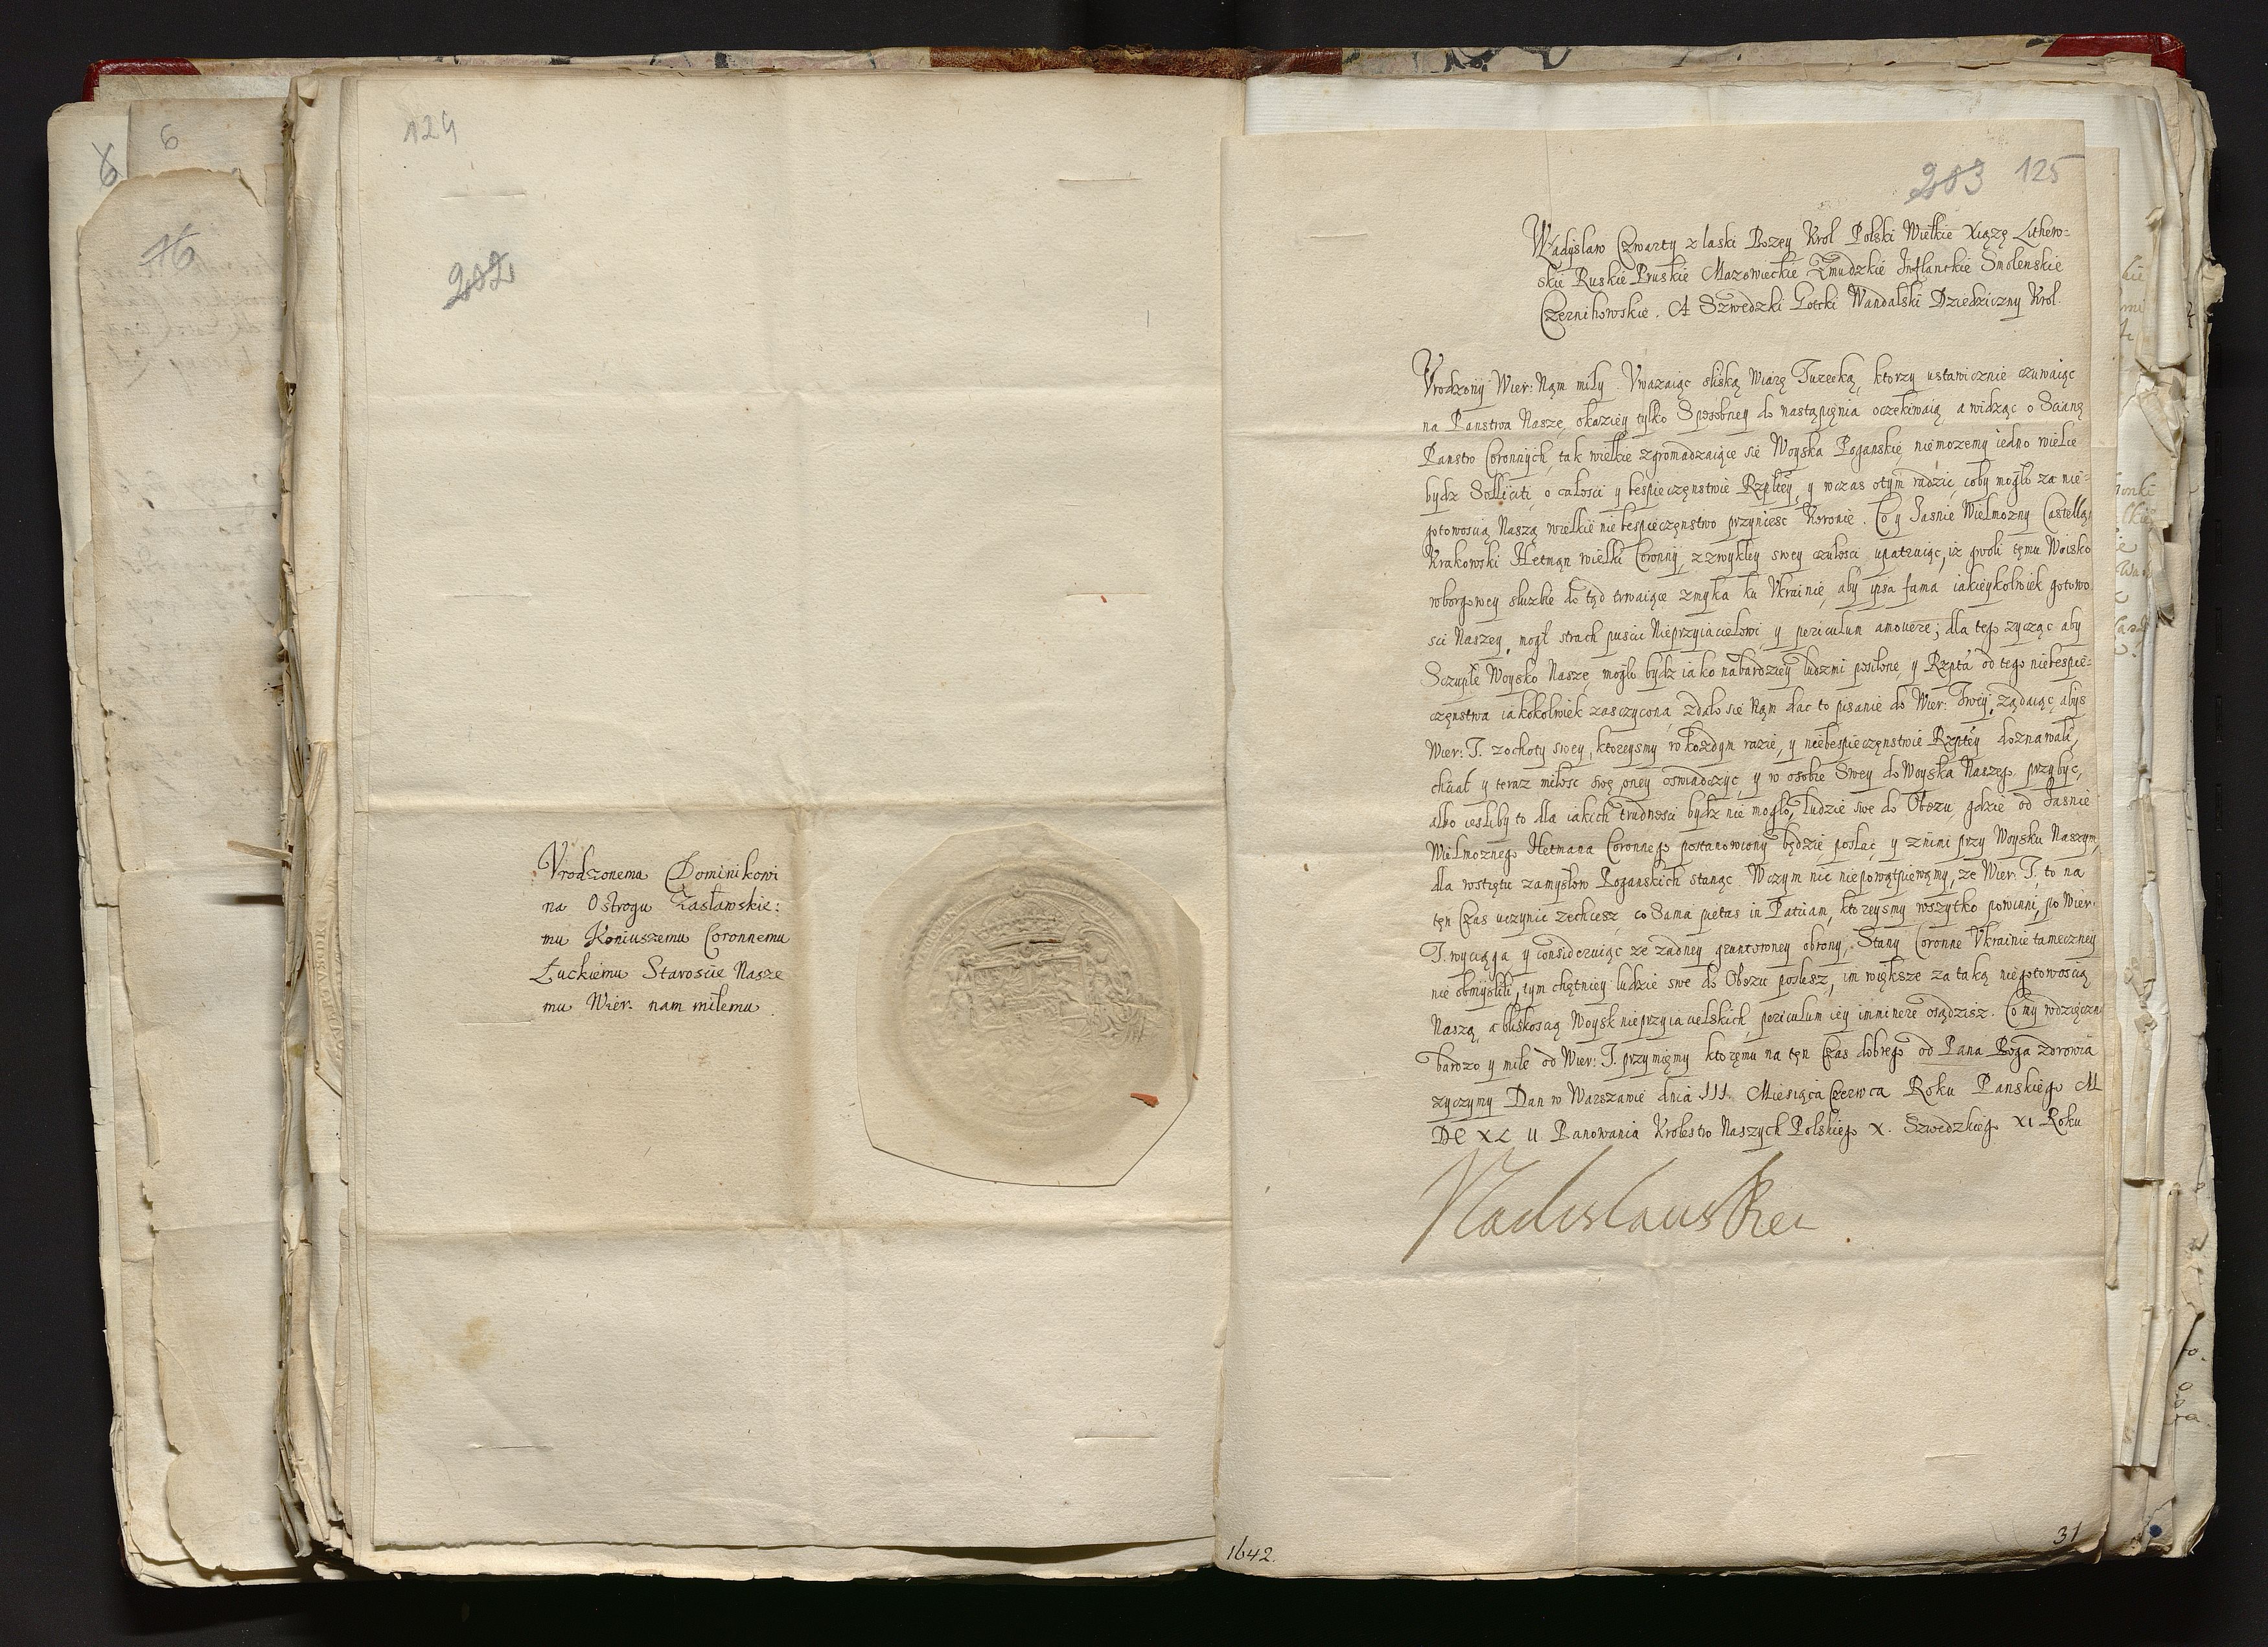 124
282
Vrodzonemu Dominikowi
na Ostrogu Zasławskie:
mu Koniuszemu Coronnemu
Łuckiemu Staroscie Nasze
mu Wier. nam miłemu.
283 125
Władysław Czwarty z laski Bozey Krol Polski Wielkie Xiążę Lithew-
skie Ruskie Pruskie Mazowieckie Zmudzkie Inflantskie Smolenskie
Czernihowskie. A Szwedzki Gotcki Wandalski Dziedziczny Krol.
Vrodzony Wier: Nąm miły. Vwazaiąc sliską wiarę Turecką, ktorzy ustawicznie czuwaiąc
na Panstwa Nasze, okaziey tylko Sposobney do nastąpięnia oczekiwaią, a widząc o Scianę
Panstw Coronnych, tak wielkie zgromadzaiące sie Woyska Poganskie, niemozemy iedno wielce
bydz Solliciti, o całosci y bespieczęnstwie Rzpltey, y wczas otym radzic, coby mogło za nie-
gotowoscią Naszą wielkie niebespieczęnstwo przyniesc Koronie. Co y Jasnie Wielmozny Castellan
Krakowski Hetmąn wielki Coronny, z zwykley swey czułosci upatruiąc, iz gwoli tęmu Woisko
w borgowey sluzbie do tąd trwaiące zmyka ku Vkrainie, aby ipsa fama iakieykolwiek gotowo
sci Naszey, mogł strach puscic Nieprzyiacielowi, y periculum amouere; dla tego zycząc aby
Sczupłe Woysko Nasze, mogło bydz iako nabardziey ludzmi posilone, y Rzpta od tego niebespie-
częnstwa iakokolwiek zasczycona, zdało sie Nąm dac to pisanie do Wier: Twey, ządaiąc abys
Wier: T. z ochoty swey, ktoreysmy w kozdym razie, y niebespieczęnstwie Rzptey doznawali,
chciał y teraz miłosc swę oney oswiadczyc, y w osobie Swey do Woyska Naszego przybyc,
albo iesliby to dla iakich trudnosci bydz nie mogło, ludzie swe do Obozu, gdzie od Jasnie
Wielmoznego Hetmana Coronnego postanowiony będzie, posłac, y z nimi przy Woysku Naszym,
dla wstrętu zamysłow Poganskich stanąc. W czym nic niepowątpiewąmy, ze Wier: T. to na
tęn Czas uczynic zechcesz, co Sama pietas in Patriam, ktoreysmy wszytko powinni, po Wier:
T. wyciąga y considerując ze zadney gruntowney obrony, Stany Coronne Vkrainie tameczney
nie obmyslili, tym chętniey ludzie swe do Obozu poslesz, im większe za taką niegotowoscią
Naszą, a bliskoscią Woysk nieprzyiacielskich, periculum iey imminere osądzisz. Co my wdzięczn
bardzo y mile od Wier: T. przymięmy ktoręmu na tęn Czas dobrego od Pana Boga zdrowia
zyczymy Dan w Warszawie dnia III Miesiąca Czerwca Roku Panskiego M
DC XL II Panowania Krolestw Naszych Polskiego X. Szwedzkiego XI Roku
Vladislaus Rex
1642.
31